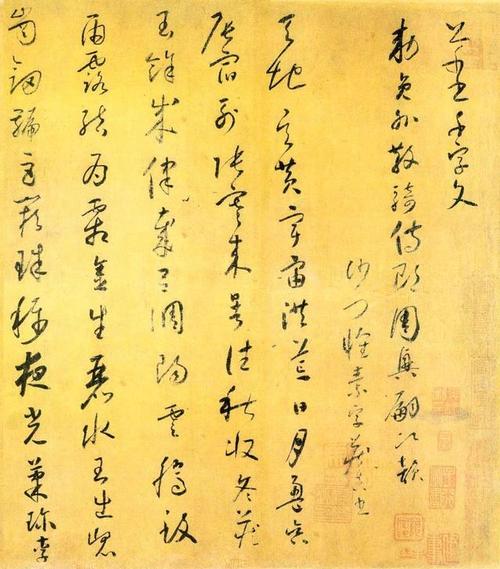 草書千字文
勑員外散騎侍郎周興嗣次韻
沙門懷素字藏真
天地玄黃宇宙洪荒日月盈昃
辰宿列張寒來暑往秋收冬藏
閏餘成律歲呂調陽雲騰致
雨露結為霜金生麗水玉出崐
崗劍號巨闕珠稱夜光菓珍李